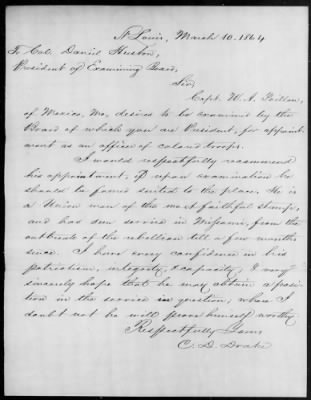 St Louis, March 10. 1864
To Col. Daniel Huston,
President of Examining Board,
Sir,
Capt. W. A.
of Mexico, Mo, desires to be examined by the
Board of which you are President, for appoint-
ment as an officer of colored troops.
I would respectfully recommend
his appointment, if upon examination he
should be found suited to the place. He is
a Union man of the most faithful stamp,
and has seen service in Missouri, from the
outbreak of the rebellion till a few months
since. I have every confidence in his
patriotism, integrity, & capacity. I very
sincerely hope that he may obtain a posi-
tion in the service in question, where I
doubt not he will prove himself worthy.
Respectfully Yours
C. D. Drake